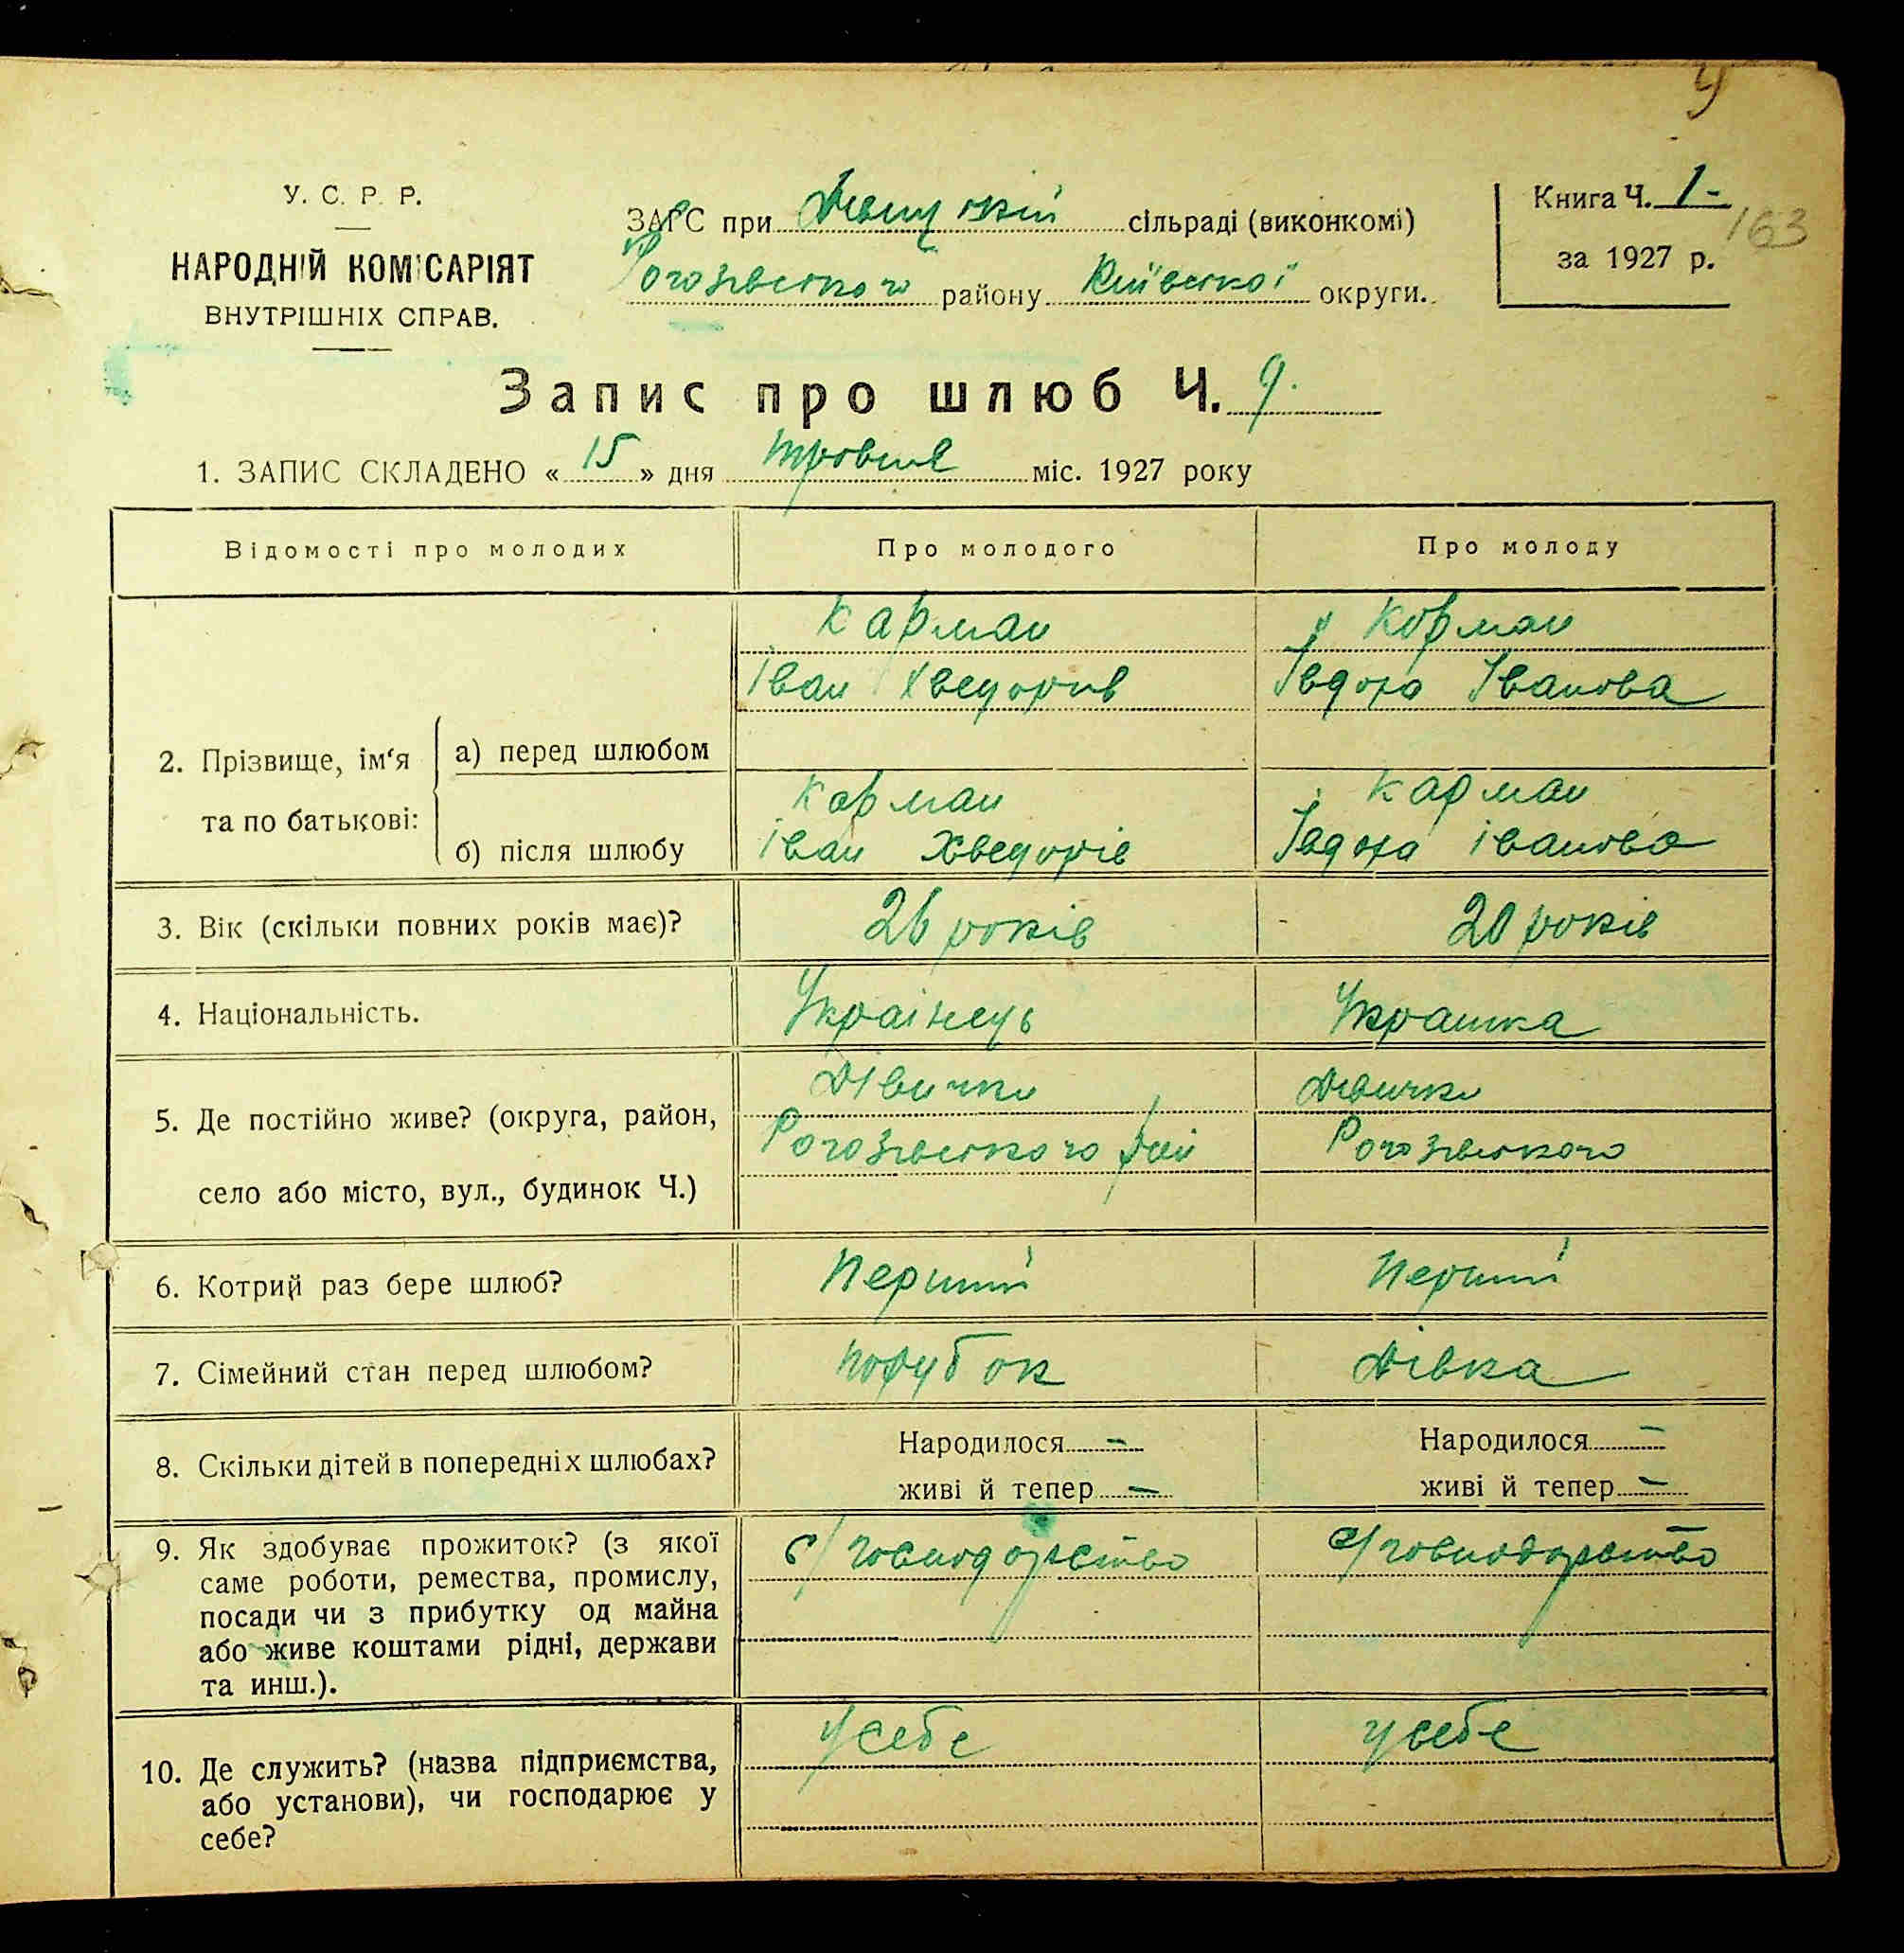 У. С. Р. Р.
НАРОДНІЙ КОМІСАРІЯТ
ВНУТРІШНІХ СПРАВ.
ЗАГС при сільраді (виконкомі)
Рогозівського району Київської округи.
Книга Ч. 1-
163
за 1927 р.
Запис про шлюб Ч. 9.
1. ЗАПИС СКЛАДЕНО « 15 » дня травня міс. 1927 року
Відомості про молодих Про молодого Про молоду
Карман Корман
Іван Хведорив Івдоха Іванова
2. Прізвище, ім‘я та по батькові:
а) перед шлюбом
б) після шлюбу
Карман Карман
Іван Хведорів Івдоха іванова
3. Вік (скільки повних років має)? 26 років 20 років
4. Національність. Українець Украінка
5. Де постійно живе? (округа, район,
село або місто, вул., будинок Ч.)
Дівички Дівички
Рогозівського рай Рогозівського
6. Котрий раз бере шлюб? Перший Перший
7. Сімейний стан перед шлюбом? порубок Дівка
8. Скільки дітей в попередніх шлюбах? Народилося - Народилося -
живі й тепер - живі й тепер -
9. Як здобуває прожиток? (з якої
саме роботи, ремества, промислу,
посади чи з прибутку од майна
або живе коштами рідні, держави
та инш.).
с/господарство с/господарство
10. Де служить? (назва підприємства,
або установи), чи господарює у
себе?
у себе у себе